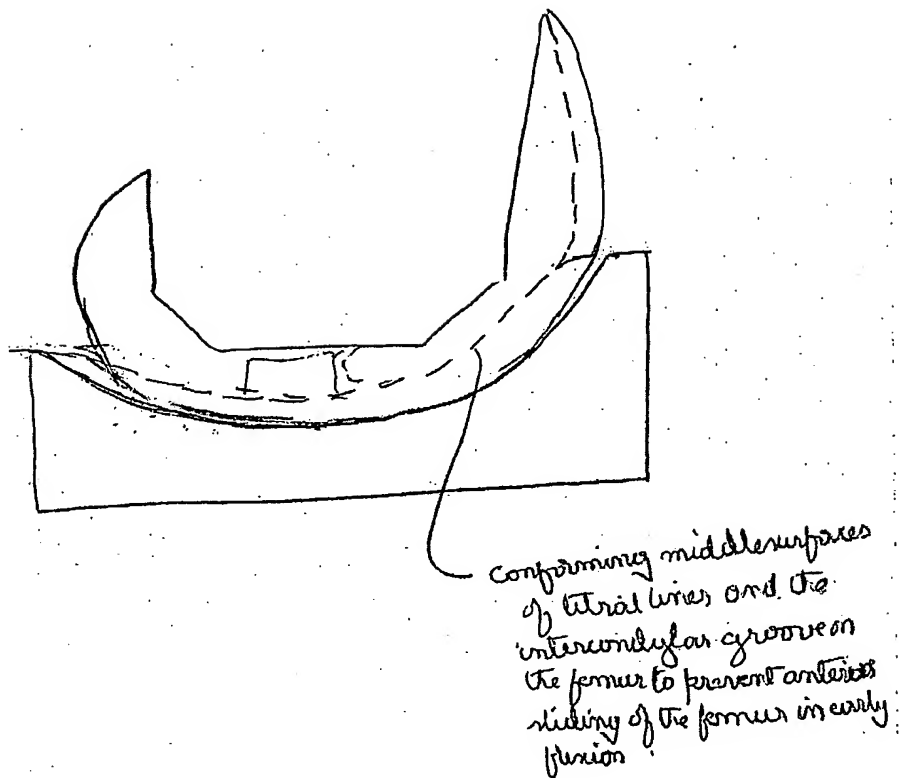 conforming middle surfaces
of tibial lines and the
intercondylar groove on
the femur to prevent anterior
sliding of the femur in early
flexion.